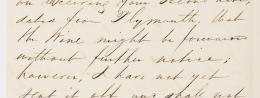 on receiving your second note,
dated from Plymouth, that
the Wine might be forwarded
without further notice;
however, I have not yet
sent it off nor shall not